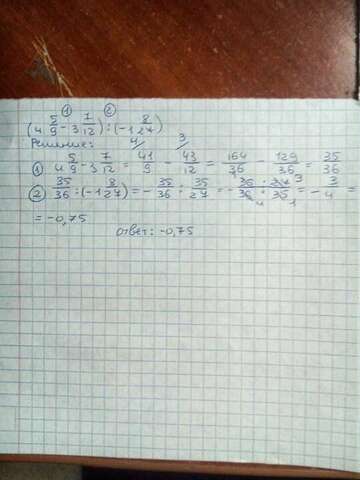 (4 5/9 - 3 7/12) : (-1 8/27)
Решение:
① 4 5/9 - 3 7/12 = 41/9 - 43/12 = 164/36 - 129/36 = 35/36
② 35/36 : (-1 8/27) = - 35/36 : 35/27 = - 35 · 27/36 · 35 = - 3/4 =
= -0,75
ответ: -0,75